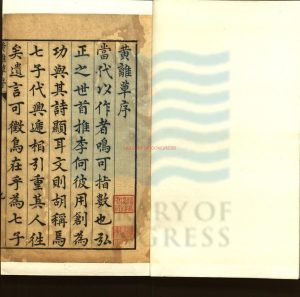 黃離草序
當代以作者鳴可指數也弘
正之世首推李何彼用創為
功與其詩顯耳文則胡稱焉
七子代興遞相引重其人往
矣遺言可徵烏在乎為七子
LIBRARY OF CONGRESS
ARY OF
GRESS